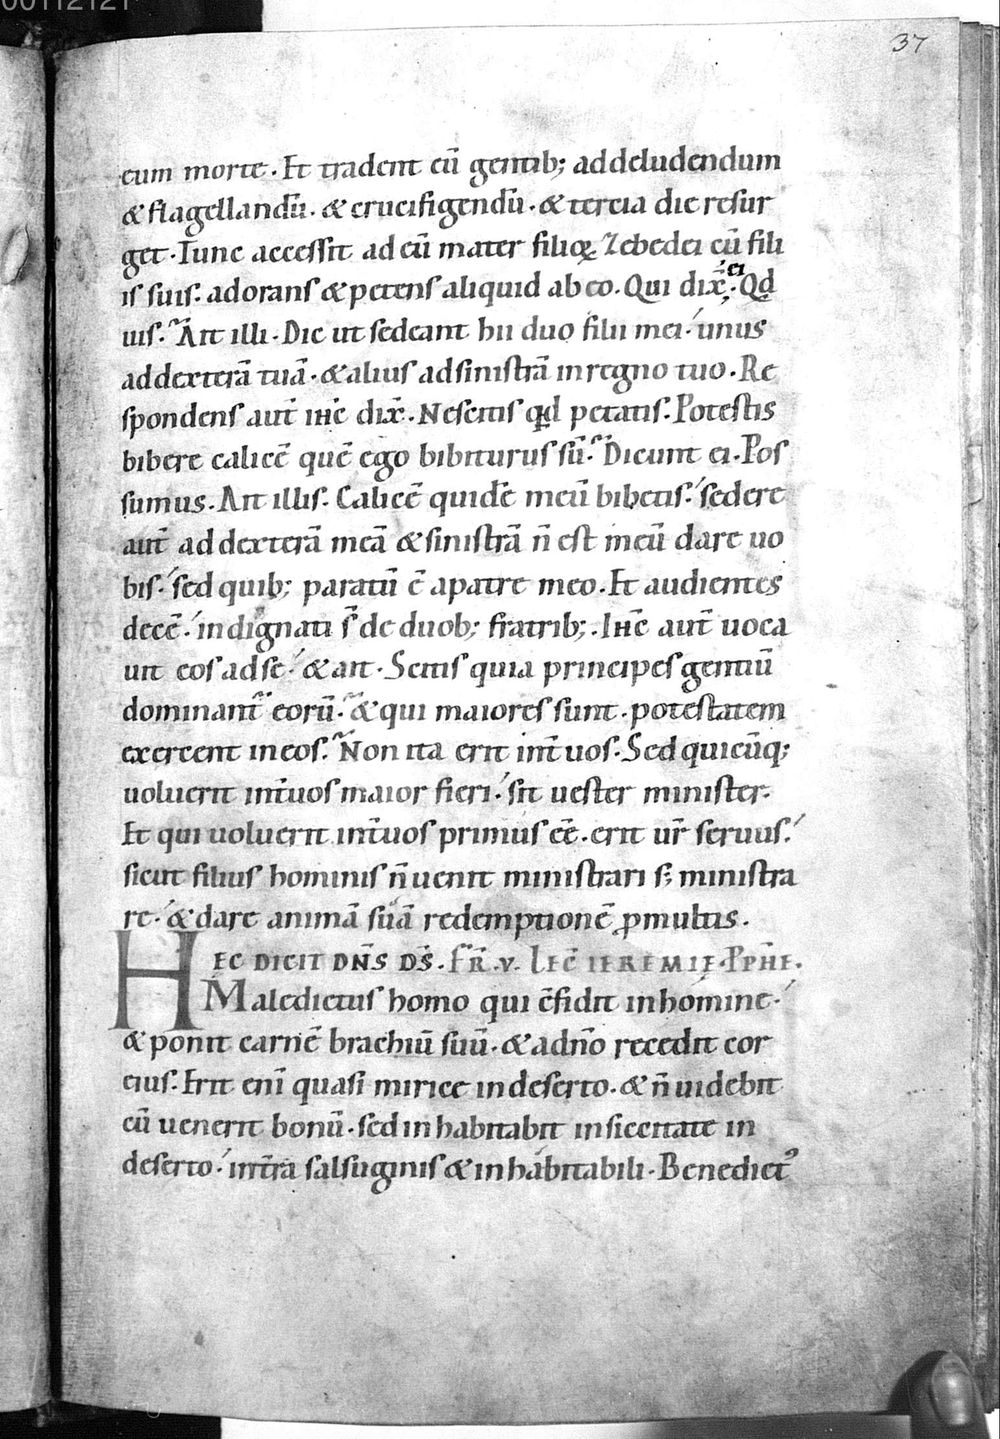 00112121
37
eum morte. Et tradent eũ gentib; ad deludendum
& flagellandũ. & crucifigendũ. & tercia die resur
get. Tunc accessit ad eũ mater filioꝝ Zebedei cũ fili
is suis. adorans & petens aliquid ab eo. Qui dix̃ ei. Qd
uis. Ait illi. Dic ut sedeant hii duo filii mei. unus
ad dexterã tuã. & alius ad sinistrã in regno tuo. Re
spondens aut̃ ihc̃ dix̃. Nescitis qd petatis. Potestis
bibere calicẽ quẽ ego bibiturus sũ. Dicunt ei. Pos
sumus. Ait illis. Calicẽ quidẽ meũ bibetis. sedere
aut̃ ad dexterã meã & sinistrã ñ est meũ dare uo
bis. sed quib; paratũ ẽ a patre meo. Et audientes
decẽ. indignati s̃ de duob; fratrib;. Ihc̃ aut̃ uoca
uit eos ad se. & ait. Scitis quia principes gentiũ
dominant̃ eorũ. & qui maiores sunt. potestatem
exercent in eos. Non ita erit int̃ uos. Sed quicũq;
uoluerit int̃ uos maior fieri. sit uester minister.
Et qui uoluerit int̃ uos primus eẽ. erit ur̃ seruus.
sicut filius hominis ñ uenit ministrari s; ministra
re. & dare animã suã redemptionẽ ꝓ multis.
HEC DICIT DÑS DS̃. FR̃. V. LEC̃ IEREMIE. PPHE.
Maledictus homo qui c̃fidit in homine.
& ponit carnẽ brachiũ suũ. & a dño recedit cor
eius. Erit enĩ quasi mirice in deserto. & ñ uidebit
cũ uenerit bonũ. sed inhabitabit in siccitate in
deserto. in terra salsuginis & inhabitabili. Benedict᾽